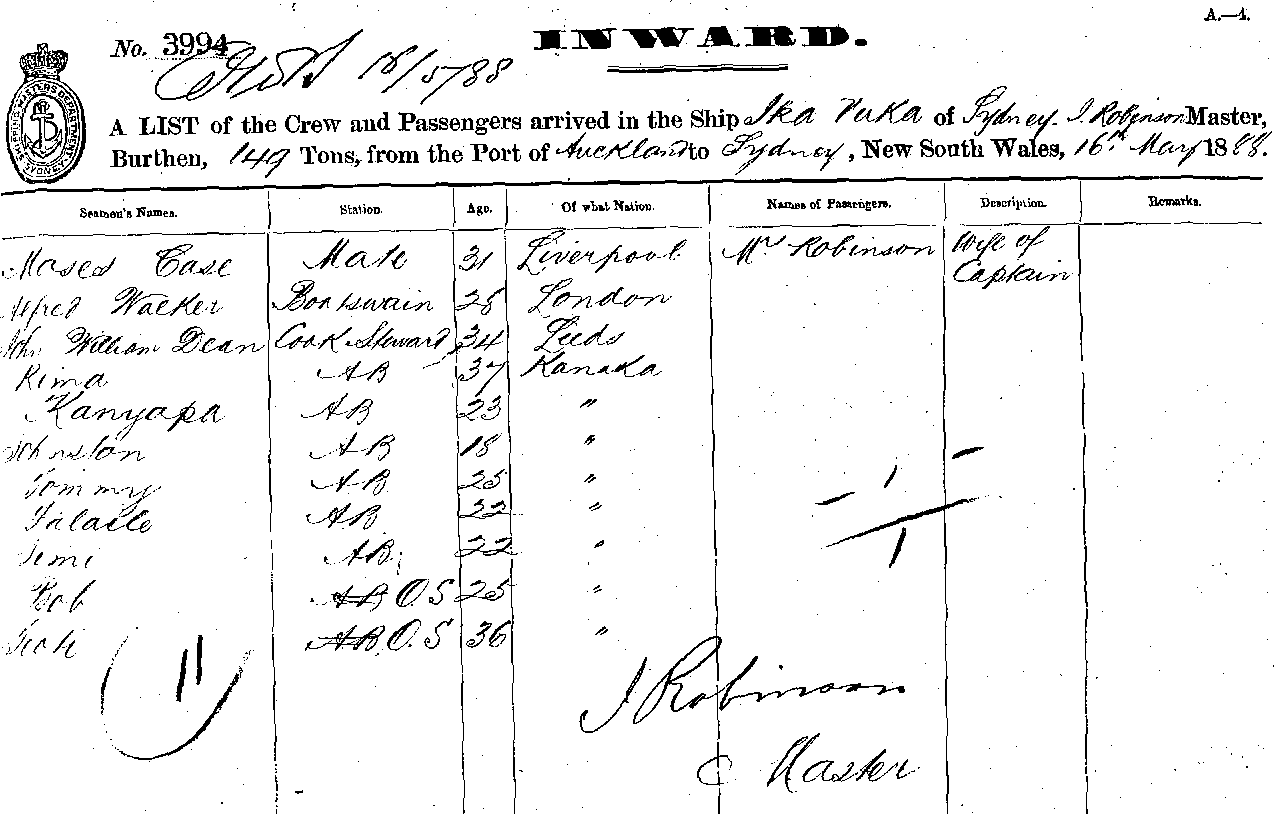 A.—4.
No. 3994 INWARD.
18/5/88
A LIST of the Crew and Passengers arrived in the Ship Ika Vuka of Sydney. J. Robinson Master,
Burthen, 149 Tons, from the Port of Auckland to Sydney, New South Wales, 16th May 1888.
Seamen's Names. Station. Age. Of what Nation. Names of Passengers. Description. Remarks.
Moses Case Mate 31 Liverpool Mrs Robinson Wife of
Captain
Alfred Walker Boatswain 28 London
John William Dean Cook Steward 34 Leeds
Rima AB 37 Kanaka
Kanyapa AB 23 "
Johnston AB 18 "
Tommy AB 25 "
AB 22 "
Jimi AB 22 "
Bob AB O.S 25 "
AB O.S 36 "
11
1
1
J Robinson
Master